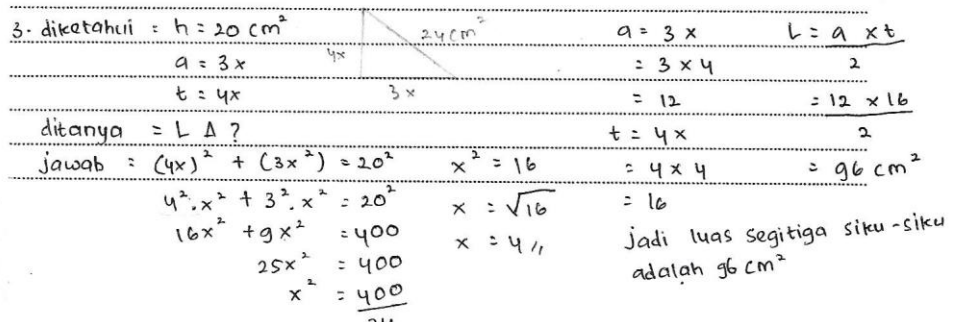 3. diketahui : h = 20 cm²
a = 3x
t = 4x
4x
24cm²
3x
ditanya = L Δ ?
jawab : (4x)² + (3x²) = 20²
4².x² + 3².x² = 20²
16x² + 9x² = 400
25x² = 400
x² = 400
x² = 16
x = √16
x = 4 //
a = 3x
= 3 x 4
= 12
t = 4x
= 4 x 4
= 16
L = a x t
2
= 12 x 16
2
= 96 cm²
jadi luas segitiga siku-siku
adalah 96 cm²